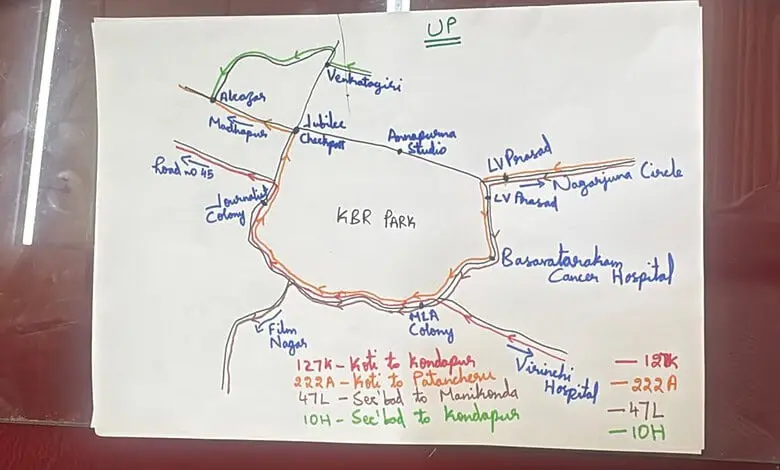 UP
Venkatagiri
Alcazar
Madhapur
Jubilee
Checkpost
Annapurna
Studio
LV Prasad
Nagarjuna Circle
LV Prasad
Road no 45
Journalist
Colony
KBR PARK
Basavatarakam
Cancer Hospital
MLA
Colony
Film
Nagar
Virinchi
Hospital
127K - Koti to Kondapur
222A - Koti to Patancheru
47L - Sec'bad to Manikonda
10H - Sec'bad to Kondapur
— 127K
— 222A
— 47L
— 10H